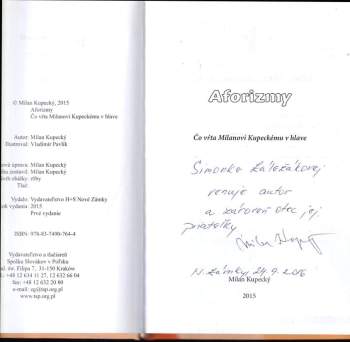 © Milan Kupecký, 2015
Aforizmy
Čo vŕta Milanovi Kupeckému v hlave
Autor: Milan Kupecký
Ilustroval: Vladimír Pavlík
Milan Kupecký
Milan Kupecký
Tlač:
Vydalo: Vydavateľstvo H+S Nové Zámky
Rok vydania: 2015
Prvé vydanie
ISBN: 978-83-7490-764-4
Vydavateľstvo a tlačiareň
Spolku Slovákov v Poľsku
ul. św. Filipa 7, 31-150 Kraków
tel. +48 12 634 11 27, 12 632 66 04
fax +48 12 632 20 80
e-mail: zg@tsp.org.pl
www.tsp.org.pl
Aforizmy
Čo vŕta Milanovi Kupeckému v hlave
Simonke
venuje autor
a zároveň otec jej
priateľky
N. Zámky, 24.9.2016
Milan Kupecký
2015